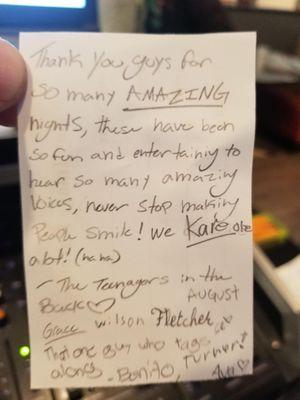 Thank you guys for
so many AMAZING
nights, these have been
so fun and entertaining to
hear so many amazing
voices, never stop making
People smile! We Kareoke
alot! (haha)
~ The Teenagers in the
Back♡ AUGUST
Grace Wilson Fletcher
That one guy who tags
along - Bonito, Turner!